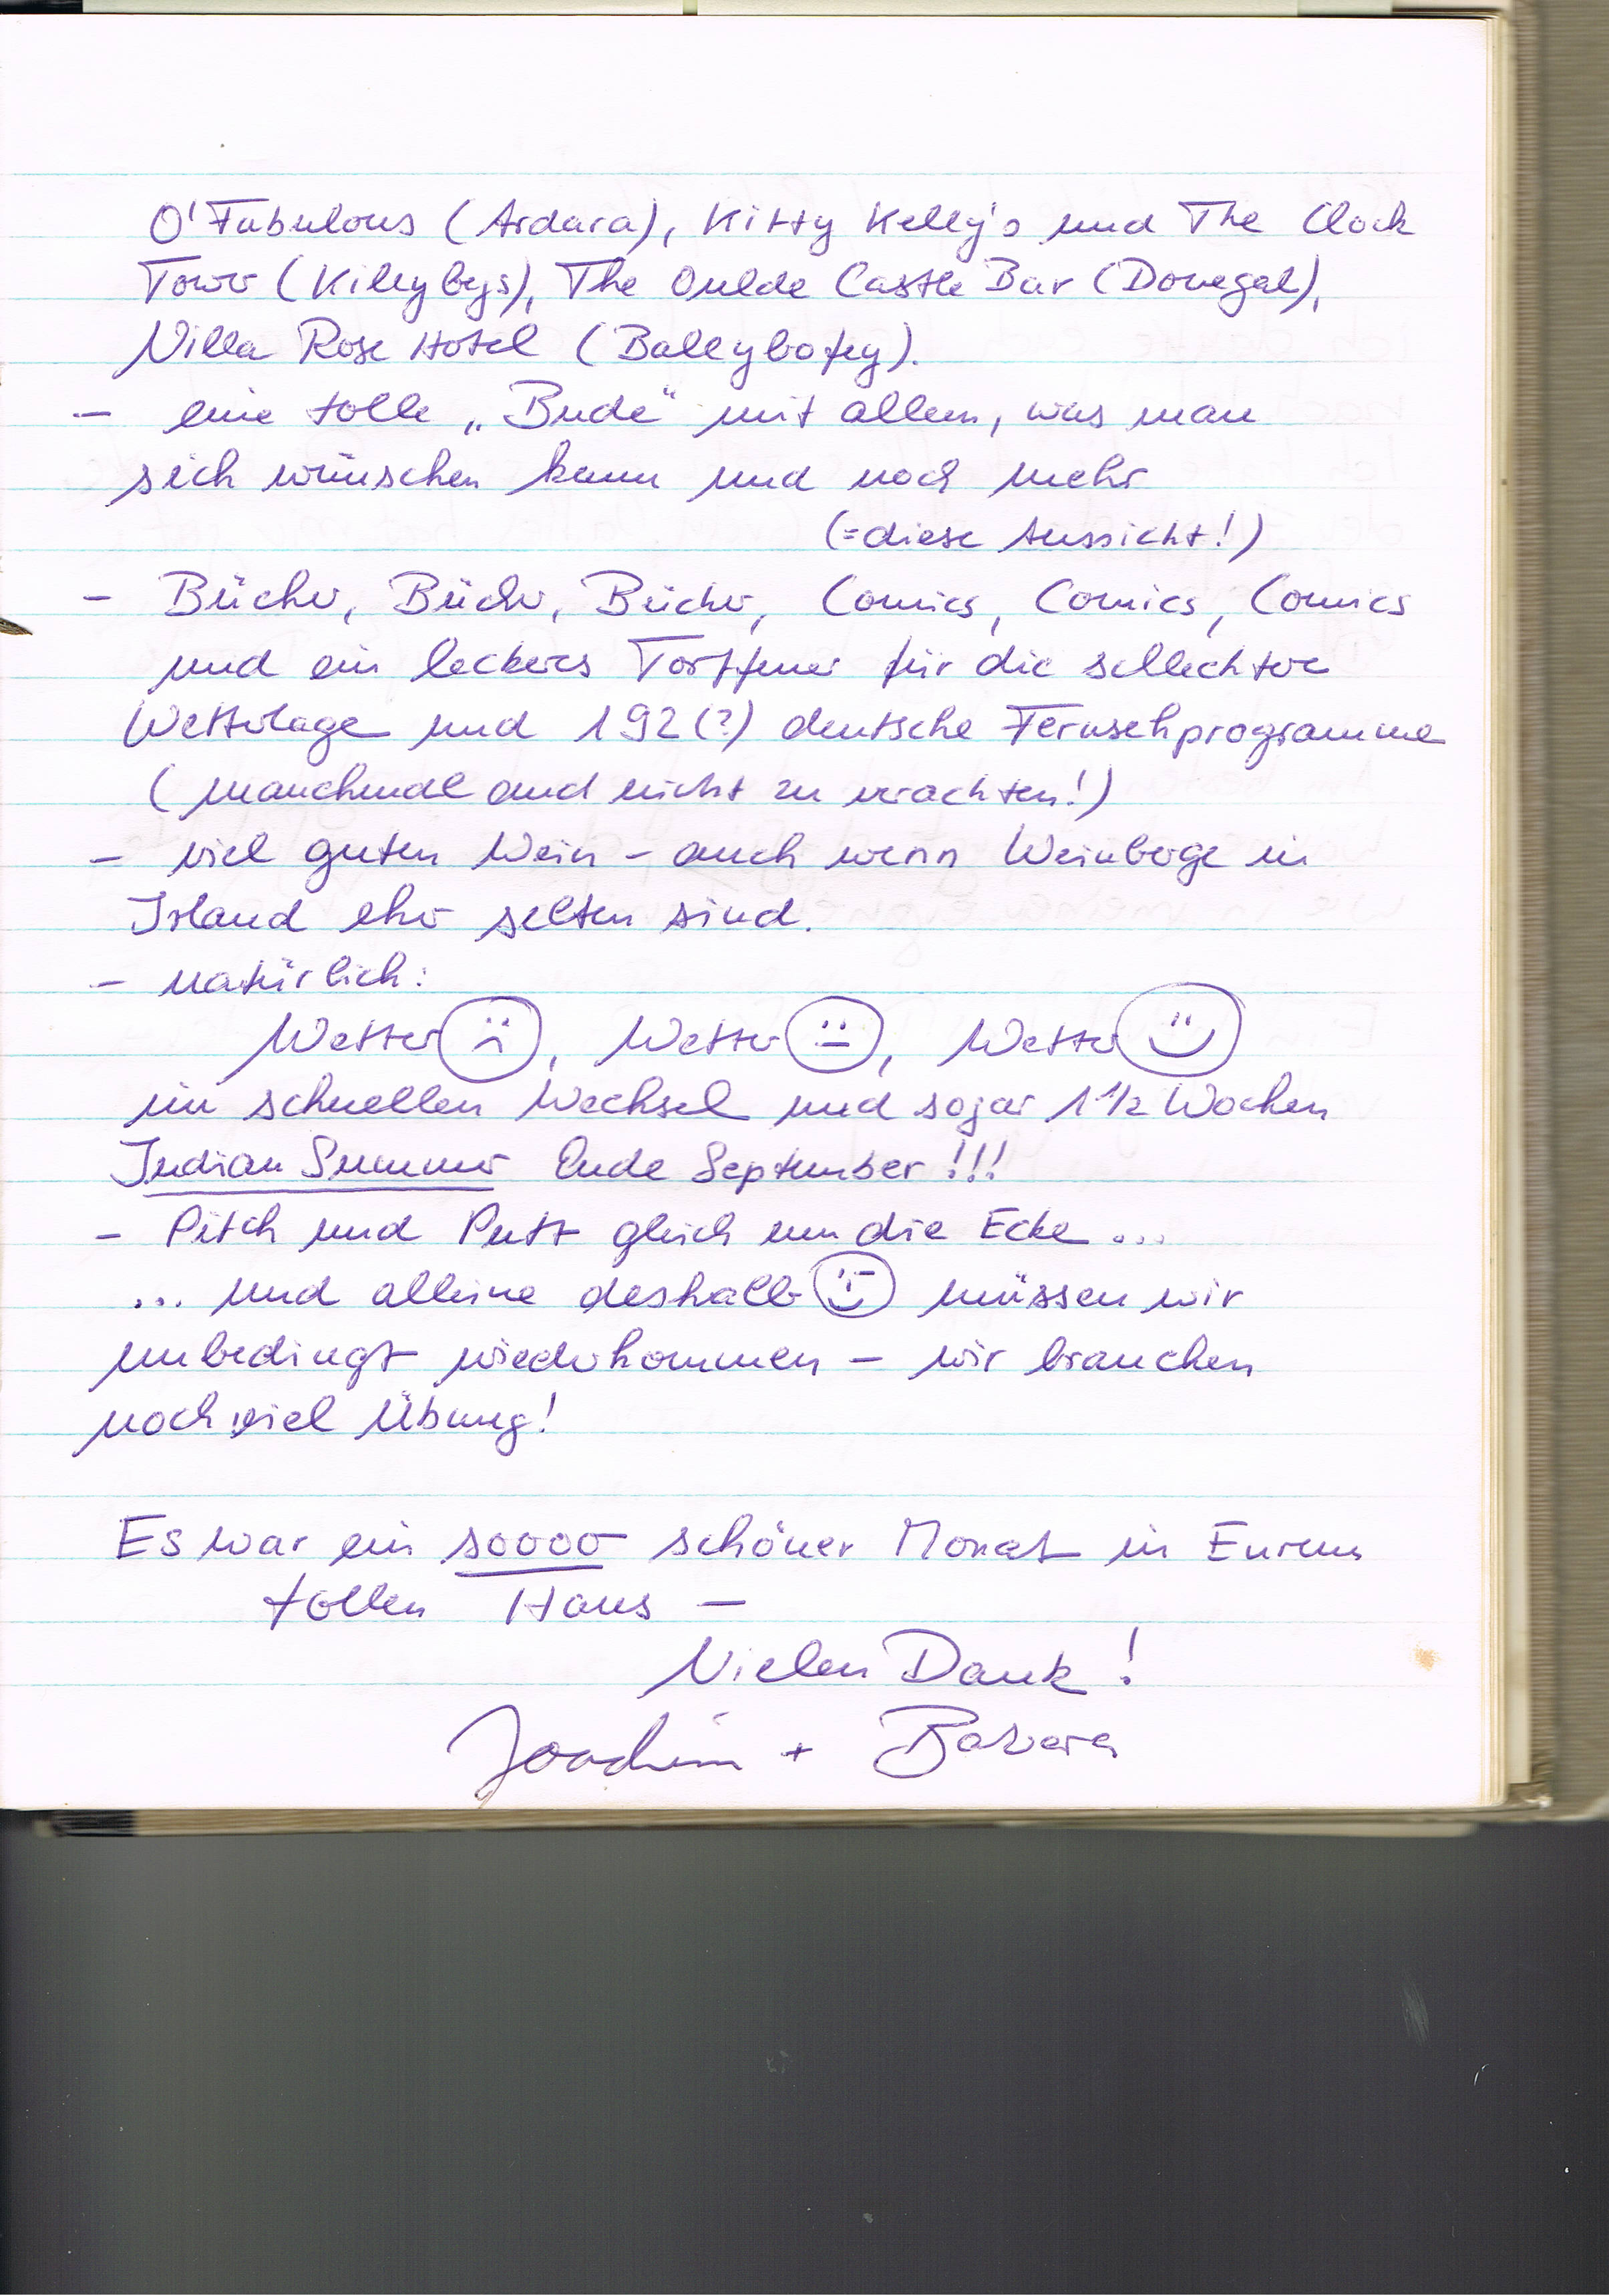 O'Fabulous (Ardara), Kitty Kelly's und The Clock
Tower (Killybegs), The Oulde Castle Bar (Donegal),
Villa Rose Hotel (Ballybofey).
– eine tolle „Bude“ mit allem, was man
sich wünschen kann und noch mehr
(=diese Aussicht!)
– Bücher, Bücher, Bücher, Comics, Comics, Comics
und ein leckeres Torffeuer für die schlechtere
Wetterlage und 192(?) deutsche Fernsehprogramme
(manchmal auch nicht zu verachten!)
– viel guten Wein – auch wenn Weinberge in
Irland eher selten sind.
– natürlich:
Wetter ☹, Wetter 😐, Wetter ☺
im schnellen Wechsel und sogar 1 1/2 Wochen
Indian Summer Ende September!!!
– Pitch und Putt gleich um die Ecke ...
... und alleine deshalb 😉 müssen wir
unbedingt wiederkommen – wir brauchen
noch viel Übung!
Es war ein soooo schöner Monat in Eurem
tollen Haus –
Vielen Dank!
Joachim + Barbara